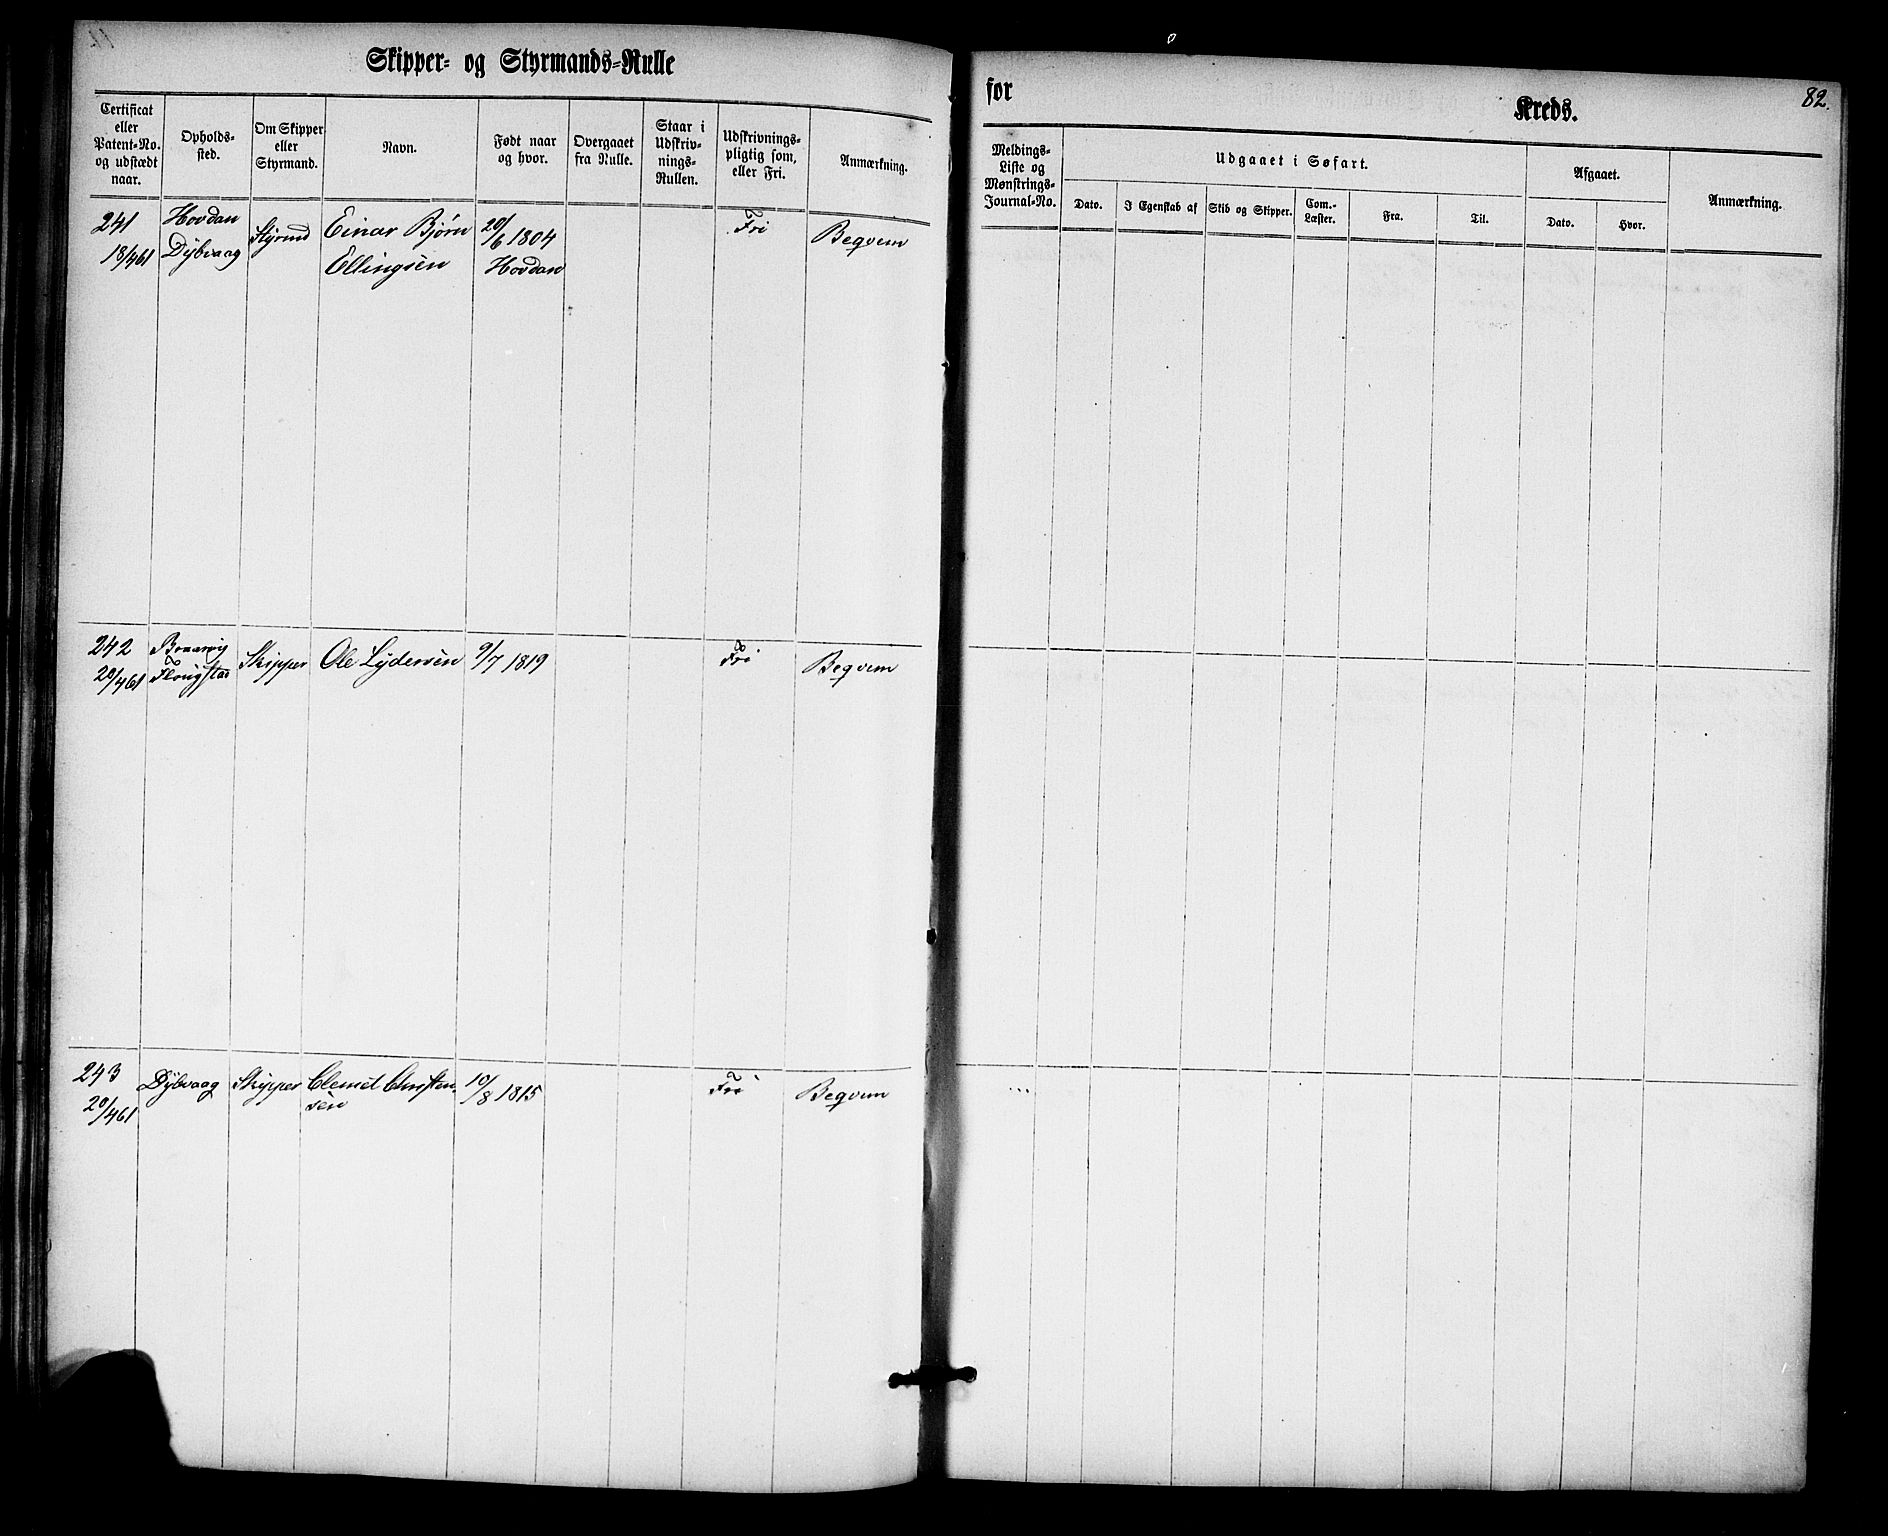 Skipper- og Styrmands-Rulle
Certificat
eller
Patent-No.
og udstædt
naar.
Opholds-
sted.
Om Skipper
eller
Styrmand.
Navn.
Født naar
og hvor.
Overgaaet
fra Rulle.
Staar i
Udskriv-
nings-
Rullen.
Udskrivnings-
pligtig som,
eller Fri.
Anmærkning.
241
18/4 61
Hovdan
Dybvaag
Styrmd
Einar Bjørn
Ellingsen
20/6 1804
Hovdan
Fri
Beqvem
242
20/4 61
Skipper
Ole Lydersen
9/7 1819
Fri
Beqvem
243
20/4 61
Dybvaag
Skipper
Clemet Christen-
sen
10/8 1815
Fri
Beqvem
for
Kreds.
82.
Meldings-
Liste og
Mønstrings-
Journal-No.
Udgaaet i Søfart.
Dato.
I Egenskab af
Skib og Skipper.
Com.-
Læster.
Fra.
Til.
Afgaaet.
Dato.
Hvor.
Anmærkning.